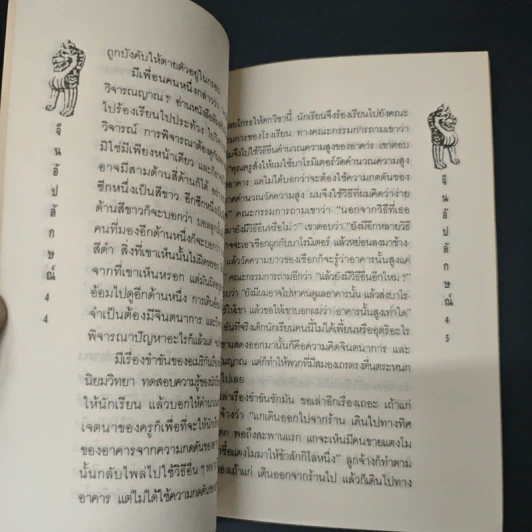 ถูกบังคับให้ตายตัวอยู่ในกรอบ
มีเพื่อนคนหนึ่งกล่าวว่า
วิจารณญาณ? อ่านหนังสือพิมพ์
ไปร้องเรียนไปประท้วง
วิจารณ์ การพิจารณาต้อง
มิใช่มีเพียงหน้าเดียว และ
อาจมีสามด้านสี่ด้านก็ได้
ซีกหนึ่งเป็นสีขาว อีกซีกหนึ่ง
ด้านสีขาวก็จะบอกว่า บอลลูก
คนที่มองอีกด้านหนึ่งก็จะบอก
สีดำ สิ่งที่เขาเห็นนั้นไม่ผิด
จากที่เขาเห็นหรอก แต่มัน
อ้อมไปดูอีกด้านหนึ่ง การเดิน
จำเป็นต้องมีจินตนาการ และ
พิจารณาปัญหาอะไรก็แล้วแต่
มีเรื่องขำขันของอเมริกัน
นิยมวิทยา ทดสอบความรู้ของนัก
ให้นักเรียน แล้วบอกให้คำนวณ
เจตนาของครูก็เพื่อที่จะให้นัก
ของอาคารจากความกดดันของ
นั้นกลับไพล่ไปใช้วิธีอื่นๆ
อาคาร แต่ไม่ได้ใช้ความกดดันของ
จีนอัปลักษณ์ 44
โกรธให้ตกวิชานี้ นักเรียนจึงร้องเรียนไปยังคณะ
กรรมการของโรงเรียน ทางคณะกรรมการถามเขาว่า
จึงไปใช้วิธีอื่นคำนวณความสูงของอาคาร เขาตอบ
"คุณครูสั่งให้ผมใช้บาโรมิเตอร์วัดคำนวณความสูง
อาคาร แต่ไม่ได้บอกว่าจะต้องให้ใช้ความกดดันของ
คำนวณวัดความสูง ผมจึงใช้วิธีที่ผมคิดว่าง่าย
คณะกรรมการถามเขาว่า "นอกจากวิธีที่เธอ
มีวิธีอื่นหรือไม่?" เขาตอบว่า "ยังมีอีกหลายวิธี
อาจจะเอาเชือกผูกกับบาโรมิเตอร์ แล้วหย่อนลงมาข้าง
แล้ววัดความยาวของเชือกก็จะรู้ว่าอาคารนั้นสูงแค่
คณะกรรมการถามอีกว่า "แล้วยังมีวิธีอื่นอีกไหม?"
ว่า "ยังมีผมอาจไปหาคนดูแลอาคารนั้น แล้วส่งบาโร
ให้เขา แล้วขอให้เขาบอกผมว่า อาคารนั้นสูงเท่าใด"
อันที่จริงเด็กนักเรียนคนนี้ไม่ได้เพี้ยนหรืออุตริอะไร
เขาแสดงออกมานั้นก็คือความคิดจินตนาการ และ
ญาณ แต่ก็ทำให้พวกที่มีสมองเถรตรงตื่นตระหนก
ไปเลย
เรื่องขำขันชักมัน ขอเล่าอีกเรื่องเถอะ เถ้าแก่
จ้างว่า "แกเดินออกไปจากร้าน เดินไปทางทิศ
พอถึงสะพานแรก แกจะเห็นมีคนขายแตงโม
ซื้อแตงโมมาให้ข้าสักกิโลหนึ่ง" ลูกจ้างก็ทำตาม
ของเถ้าแก่ เดินออกจากร้านไป แล้วก็เดินไปทาง
จีนอัปลักษณ์ 45